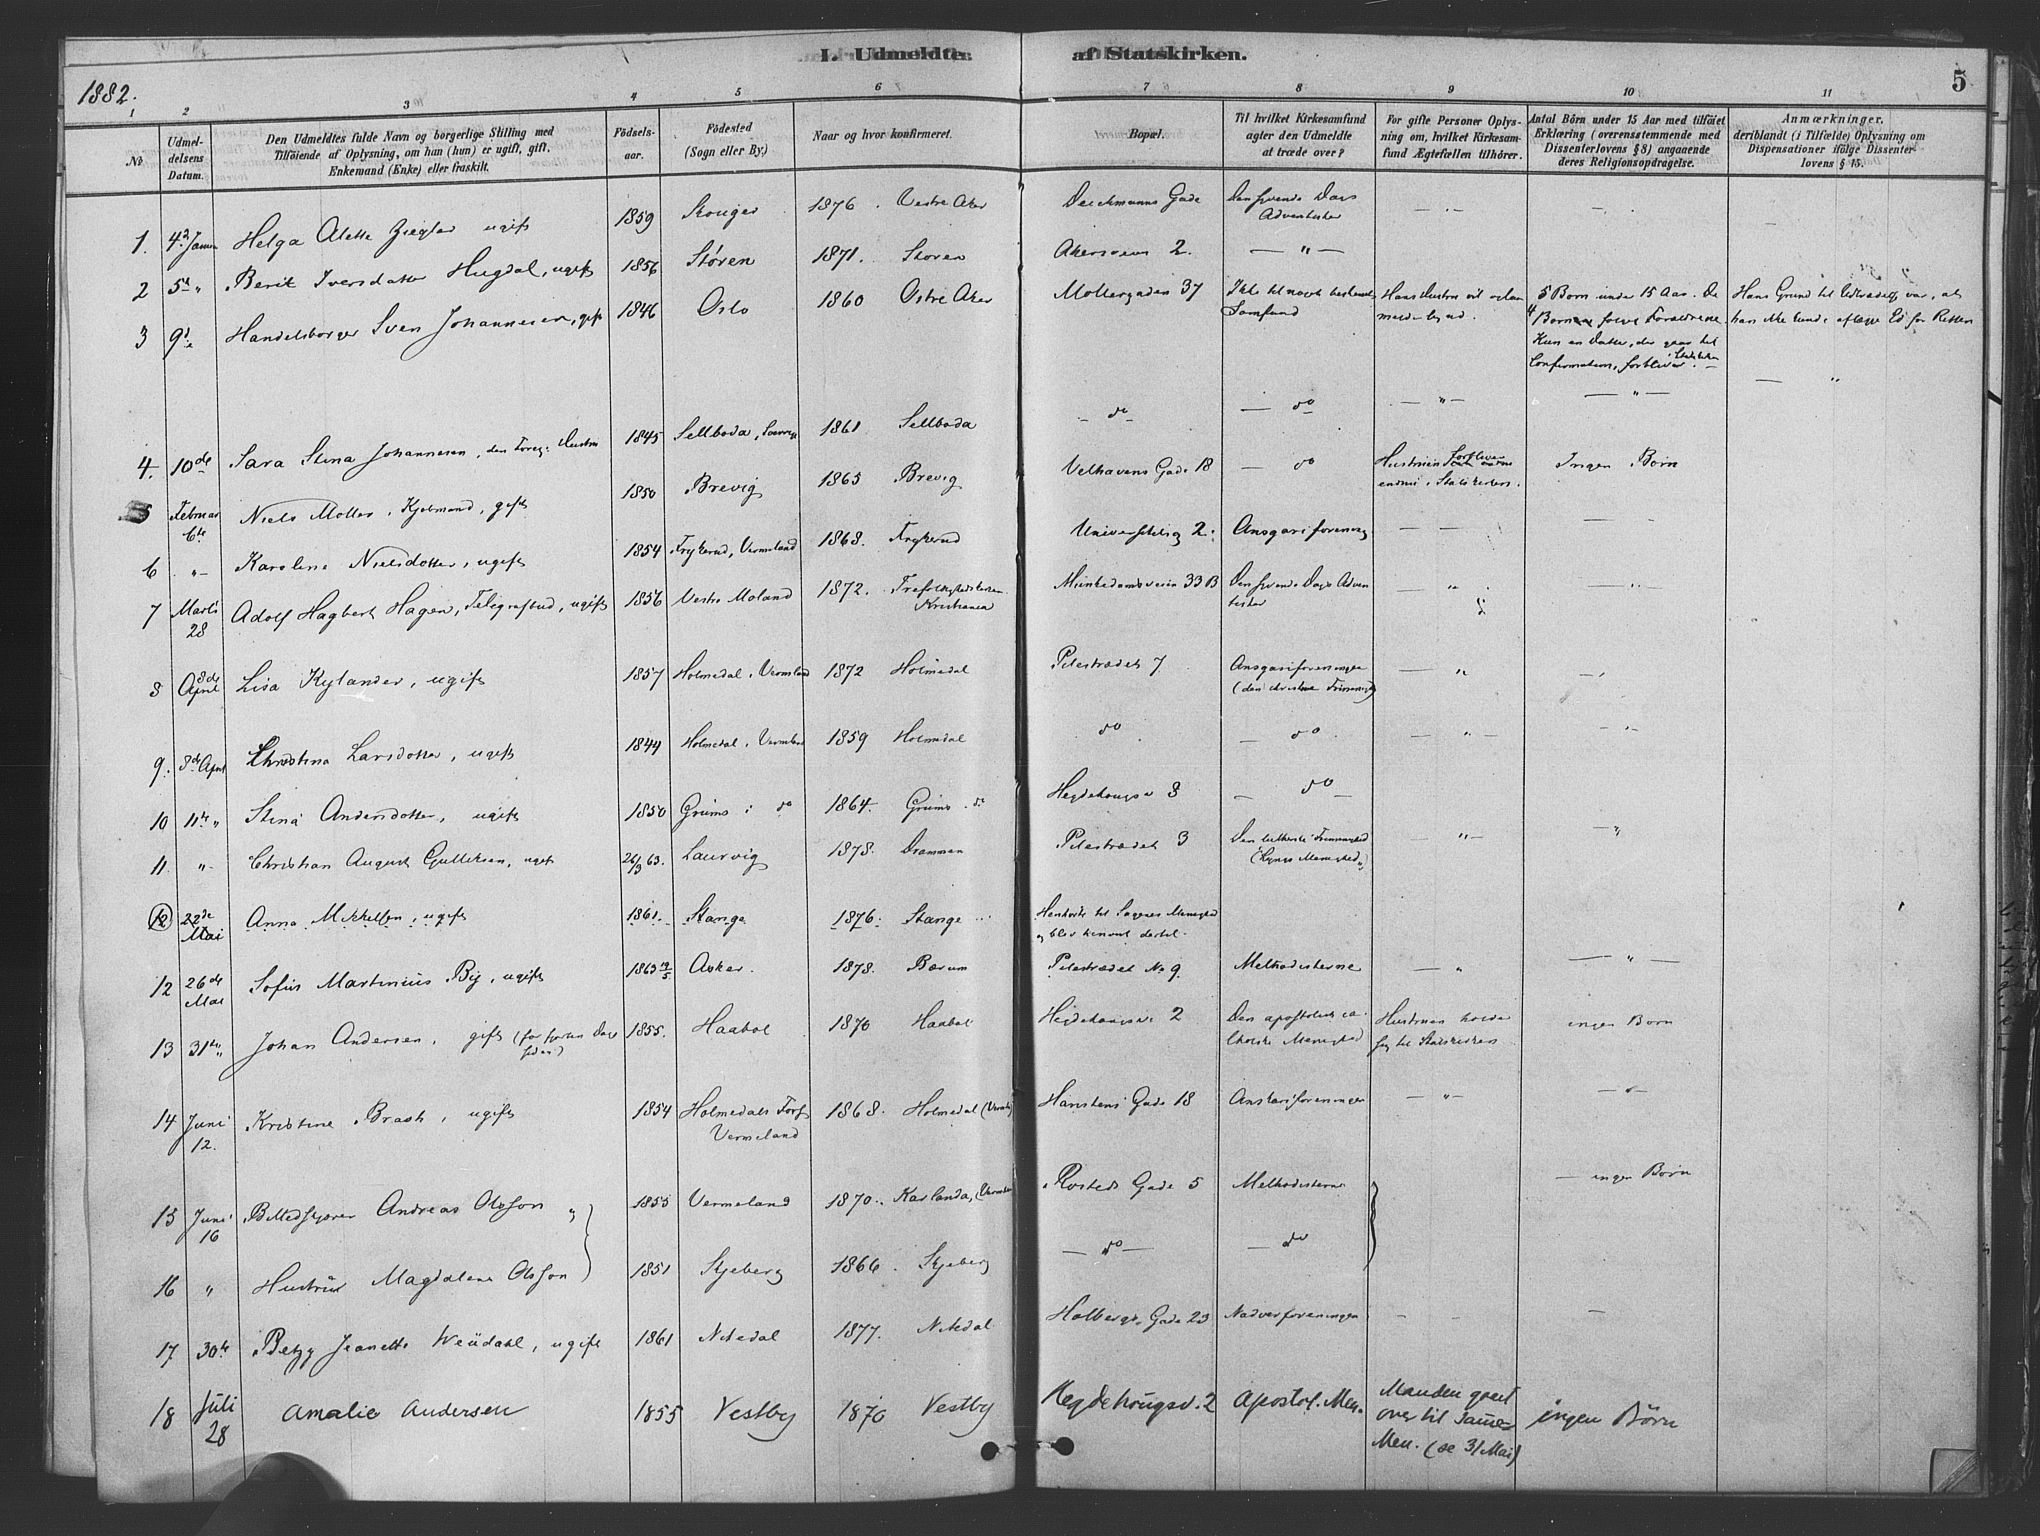 I. Udmeldte af Statskirken.
1882.
5
1 2 3 4 5 6 7 8 9 10 11
No
Udmeldelsens Datum.
Den Udmeldtes fulde Navn og borgerlige Stilling med Tilføiende af Oplysning, om han (hun) er ugift, gift, Enkemand (Enke) eller fraskilt.
Fødselsaar.
Fødested (Sogn eller By.)
Naar og hvor konfirmeret.
Bopæl.
Til hvilket Kirkesamfund agter den Udmeldte at træde over?
For gifte Personer Oplysning om, hvilket Kirkesamfund Ægtefællen tilhører.
Antal Børn under 15 Aar med tilføiet Erklæring (overensstemmende med Dissenterlovens § 8) angaaende deres Religionsopdragelse.
Anmærkninger, deriblandt (i Tilfælde) Oplysning om Dispensationer ifølge Dissenterlovens § 15.
1. 4de Januar Helga Alette Ziegler ugift 1859 Skouger 1876. Vestre Aker Deichmanns Gade Den syvende Dags Adventister — " — —
2 5te " Berit Iversdatter Hugdal, ugift 1856 Støren 1871. Støren Akersveien 2. — " —
3 9de Handelsborger Sven Johannesen, gift 1846 Oslo 1860 Østre Aker Møllergaden 37 Ikke til noget bestemt Samfund Hans Hustru 5 Børn under 15 Aar. De 4 Børn følge Forældrene Kun en Datter, der gaar til Confirmation, forbliver i Statskirken. Hans Grund til Udtrædelse var, at han ikke kunde aflægge Ed for Retten
4. 10de Sara Stina Johannesen, den Foreg. Hustru 1845 Sellboda, Sverrige 1861 Sellboda — do — do — " — — " — — "
5 Februar 6te Niels Møller, Kjøbmand, gift 1850 Brevig 1865 Brevig Velhavens Gade 18 — do Hustruen forbliver endnu i Statskirken. Ingen Børn
6 — " — Karoline Nielsdotter, ugift 1854 Frykerud, Vermeland 1868. Frykerud Universitetsg 2. Ansgariforening — — — —
7 Marts 28 Adolf Hagbart Hagen, Telegrafbud, ugift 1856 Vestre Moland 1872. Trefoldighedskirken Kristiania Munkedamsveien 33 B Den syvende Dags Adventister — " — "
8 8de April Lisa Kylander, ugift 1857 Holmedal, Vermland 1872 Holmedal Pilestrædet 7 Ansgariforeningen (den christne Frimenighed) — "
9. 8de April Christina Larsdotter, ugift 1844 Holmedal, Vermland 1859 Holmedal do — do — " —
10 11te " Stina Andersdotter, ugift 1850 Grums i do 1864. Grums do Hegdehaugsv 8 — do —
11. " Christian August Gulliksen, ugift 26/3 63. Laurvig 1878. Drammen Pilestrædet 3 Den lutherske Frimenighed — " — — "
12 22de Mai Anna Mikkelsen, ugift 1861. Stange 1876. Stange Henhørte til Sagenes Menighed og blev henvist dertil.
12 26de Mai Sofus Martinius By, ugift 1863 Asker. 1878. Bærum Pilestrædet No 9. Methodisterne — " — " —
13 31te " Johan Andersen, gift (for fjorten Dage siden) 1855. Haabøl 1870 Haabøl Hegdehaugsv. 2 Den apostolisk catholske Menighed Hustruen holder sig til Statskirken ingen Børn
14 Juni 12. Kristine Brask, ugift 1854 Holmedals Vermeland 1868. Holmedal Hanstens Gade 18 Anskariforeningen — " —
15 Juni 16 Andreas Olsson " 1855 Vermeland 1870. Karlanda, Rosteds Gade 5 Methodisterne — ingen Børn
16 " Hustru Magdalena Olsson 1851 Skjeberg 1866. Skjeberg — do — — do
17 30te Betzy Jeanette Weüdahl, ugift 1861 Nitedal 1877. Nitedal Holbergs Gade 23 Nadverforeningen — —
18 Juli 28 Amalie Andersen 1855 Vestby 1870 Vestby Hegdehougsv. 2 Apostol. Men. Manden gaaet over til samme Men. (se 31 Mai) ingen Børn